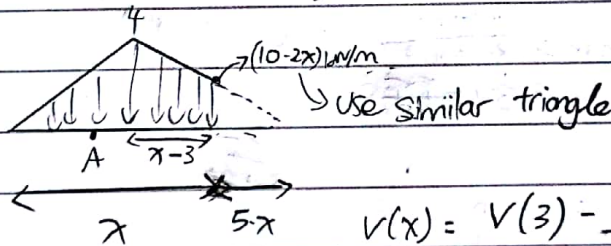 4
(10-2x) kN/m
use similar triangle
A
x-3
x
5-x
V(x) = V(3) -